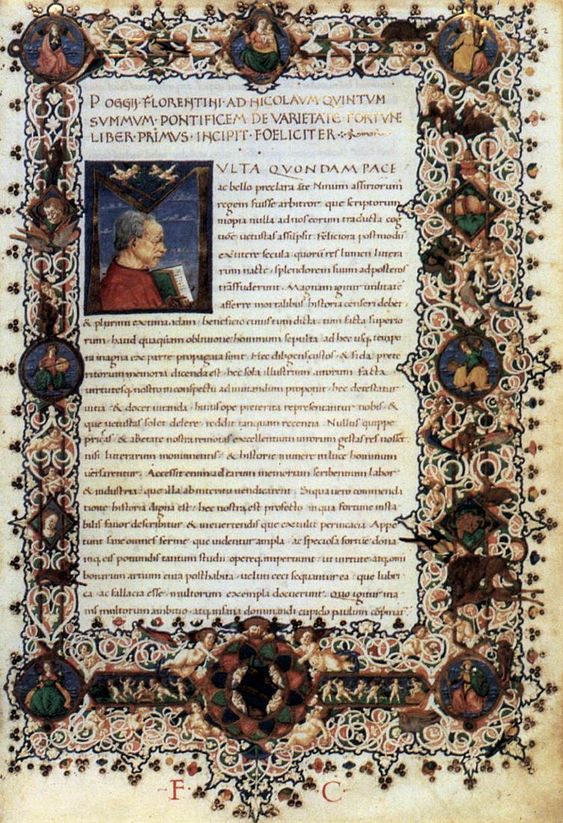 POGGII · FLORENTINI · AD · NICOLAVM · QVINTVM
SVMMVM · PONTIFICEM · DE VARIETATE · FORTVNE
LIBER · PRIMVS · INCIPIT · FOELICITER
VLTA QVONDAM PACE
ac bello preclara ante Ninum assiriorum
regem fuisse arbitror que scriptorum
inopia nulla ad nos eorum traducta cog
uetustas Feliciora postmodū
secula quorū res lumen littera
rum nacte splendorem suum ad posteros
Magnam igitur utilitatē
afferre mortalibus historia censeri debet
& plurimi beneficio cuius tum dicta tum facta superio
rum haud hominum sepulta ad hec usq tempo
ra magna ex parte propagata sunt
memoria dicenda est hec sola illustrium uirorum facta
uirtutesq nostro in conspectu ad imitandum proponit hec detestatur
uitia & docet uitanda huius ope preterita representantur nobis &
que uetustas solet delere reddit tanquam recentia Nullus quippe
priscas & ab etate nostra remotas excellentium uirorum gestas res nosset
nisi litterarum monimentis & historie munere in luce hominum
uersarentur Accessit memoriam scribentium labor
& industria que illa ab interitu uendicarent Si qua uero commenda
tione historia digna est hec nostra est profecto in qua fortune insta
bilis fauor describitur & euertendis que extulit Appe
tunt sane omnes ferme que uidentur ampla ac speciosa fortune dona
inq eis potiundis tantum studii opereq impertiunt ut uirtute atq omni
bonarum artium cura posthabita uelim ceci sequantur ea que lubri
ca ac fallacia esse multorum exempla docuerunt Quo igitur ina
nis multorum ambitio atq infinita dominandi cupido paulum
F C